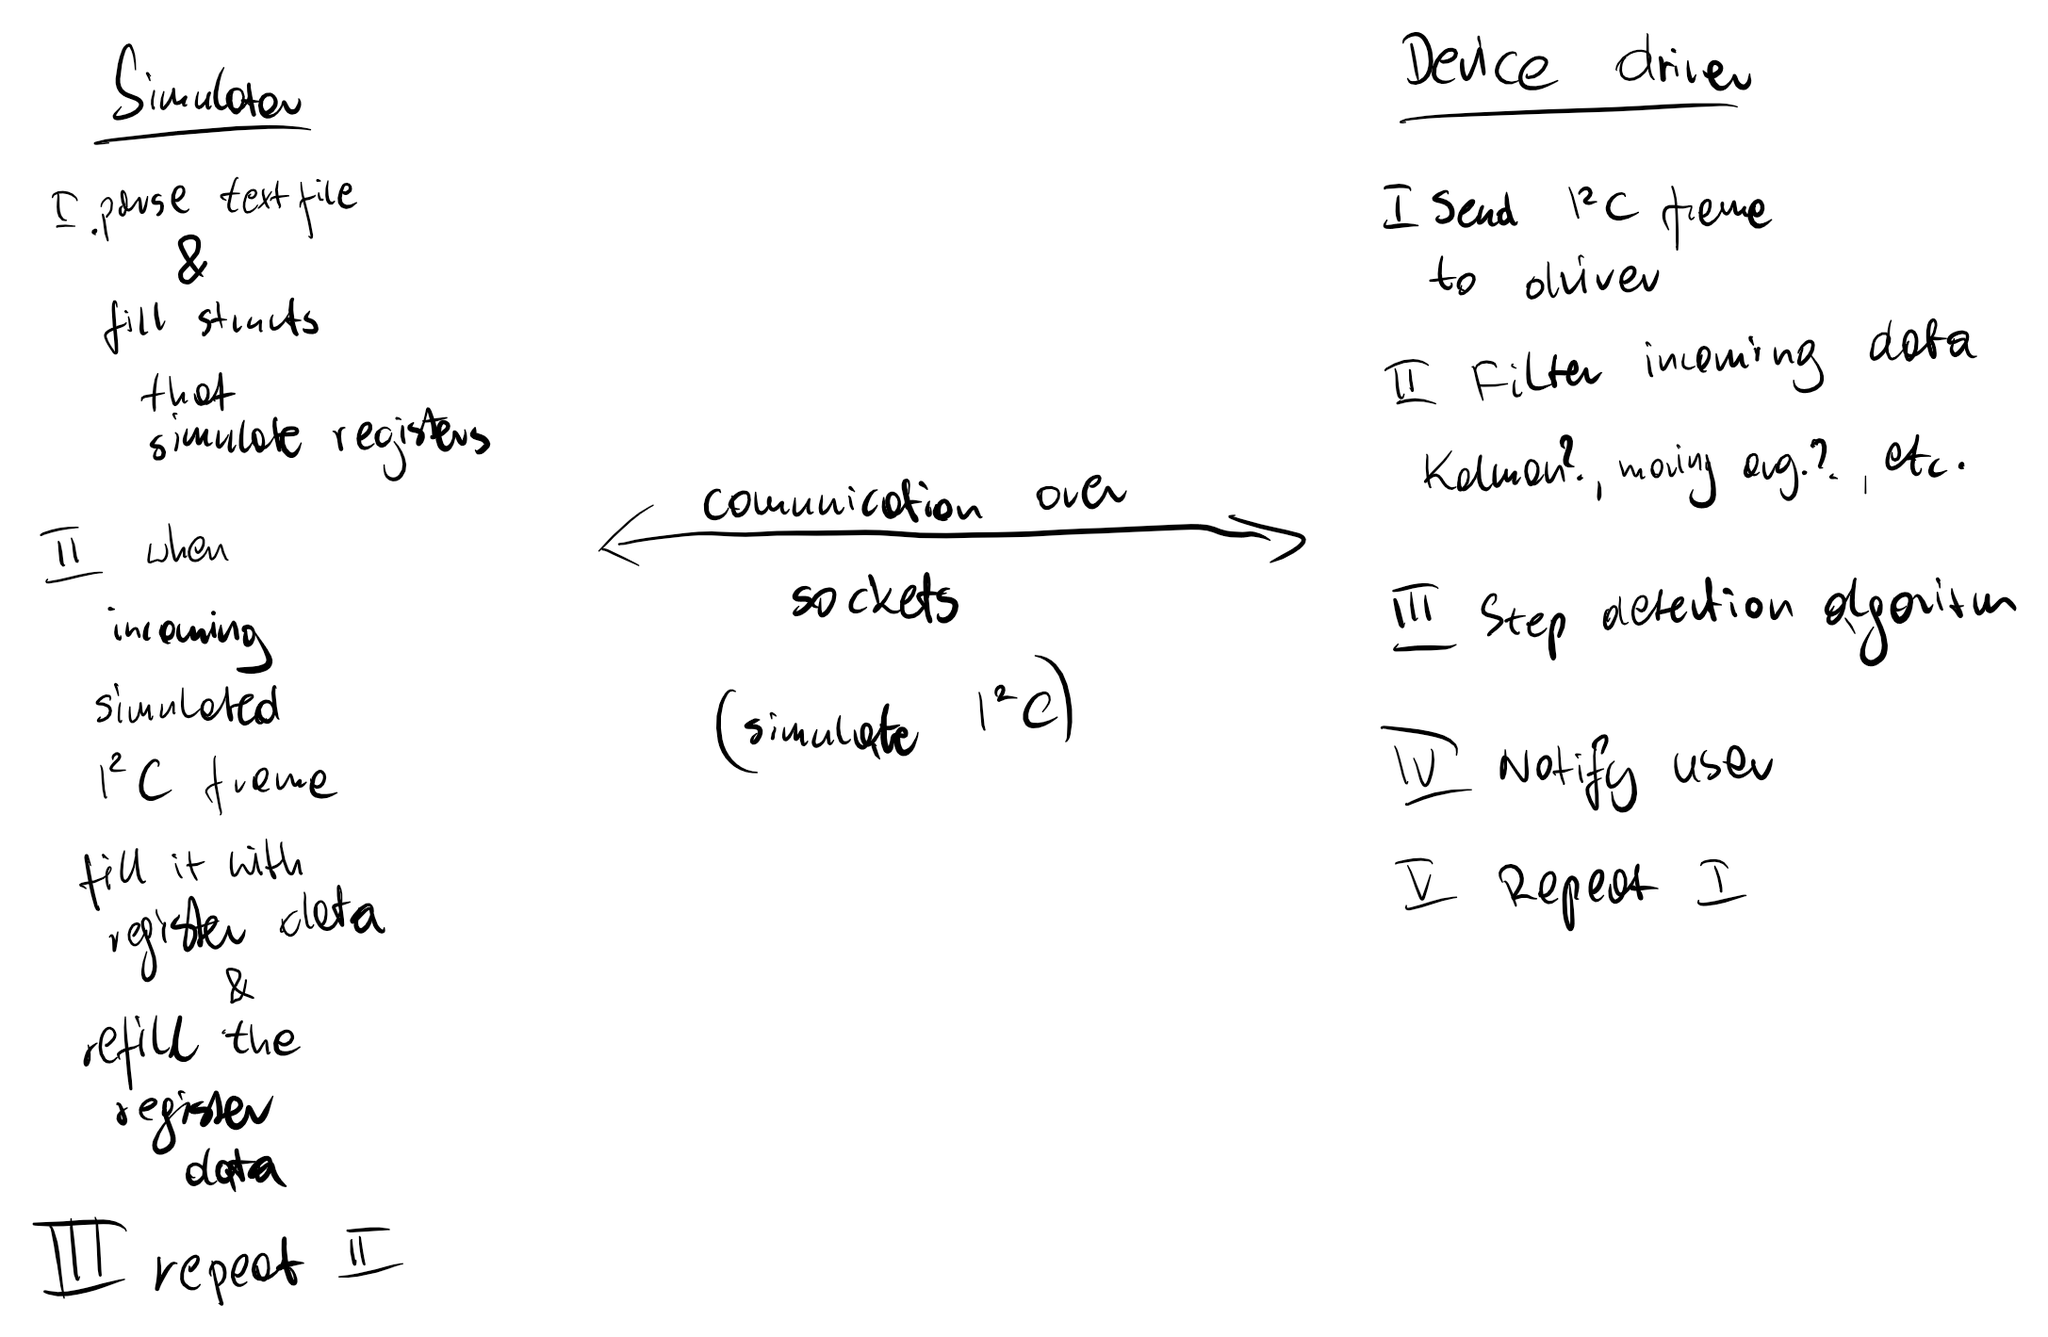 Simulator
I. parse textfile
&
fill structs
that
simulate registers
II when
incoming
simulated
I²C frame
fill it with
register data
&
refill the
register
data
III repeat II
comunication over
sockets
(simulate I²C)
Device driver
I Send I²C frame
to driver
II Filter incoming data
Kalman?, moving avg.?, etc.
III Step detection algoritm
IV Notify user
V Repeat I